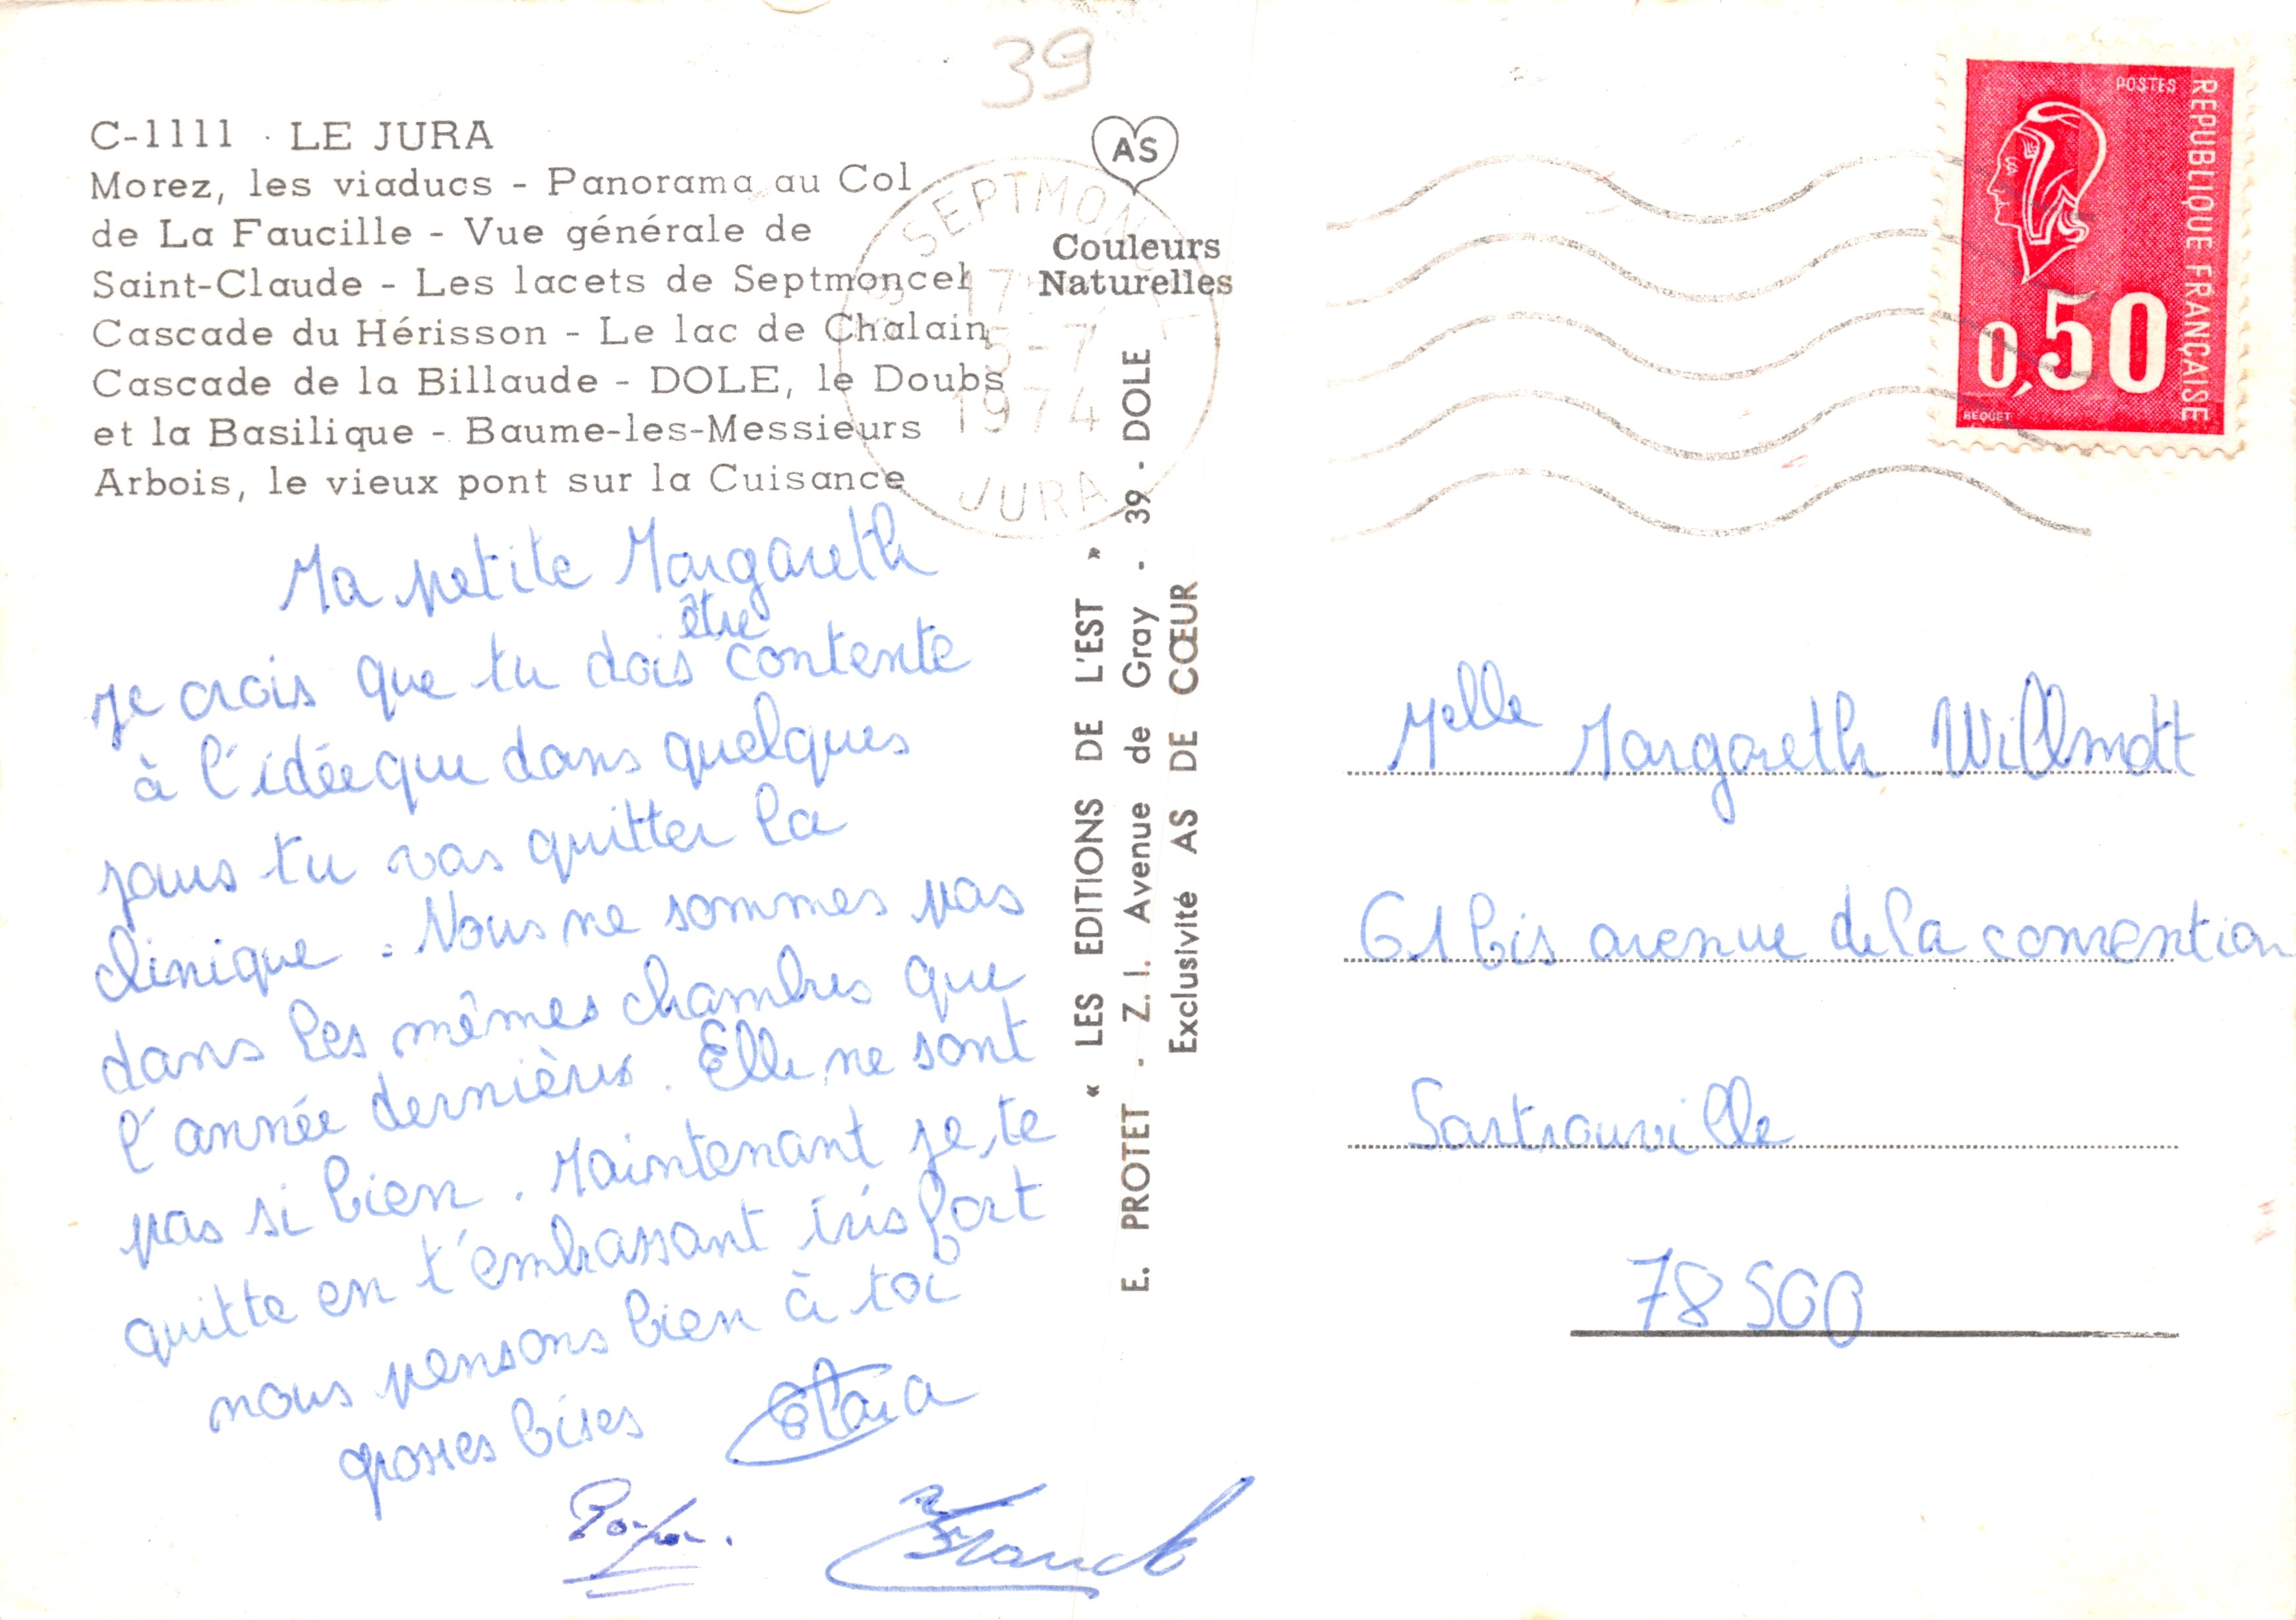 39
C-1111 · LE JURA
Morez, les viaducs - Panorama au Col
de La Faucille - Vue générale de
Saint-Claude - Les lacets de Septmoncel
Cascade du Hérisson - Le lac de Chalain
Cascade de la Billaude - DOLE, le Doubs
et la Basilique - Baume-les-Messieurs
Arbois, le vieux pont sur la Cuisance
AS
Couleurs
Naturelles
SEPTMONCEL
17
5-7
1974
JURA
Ma petite Margareth
être
je crois que tu dois contente
à l'idée que dans quelques
jours tu vas quitter la
clinique. Nous ne sommes pas
dans les mêmes chambres que
l'année dernières. Elle ne sont
pas si bien. Maintenant je te
quitte en t'embrassant très fort
nous pensons bien à toi
grosses bises
Papa.
Franck
« LES EDITIONS DE L'EST »
E. PROTET - Z. I. Avenue de Gray - 39 - DOLE
Exclusivité AS DE CŒUR
POSTES
REPUBLIQUE FRANÇAISE
0,50
BEQUET
Melle Margareth Willmott
61 bis avenue de la convention
Sartrouville
78500